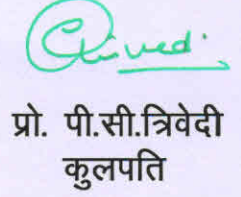 प्रो. पी.सी.त्रिवेदी
कुलपति